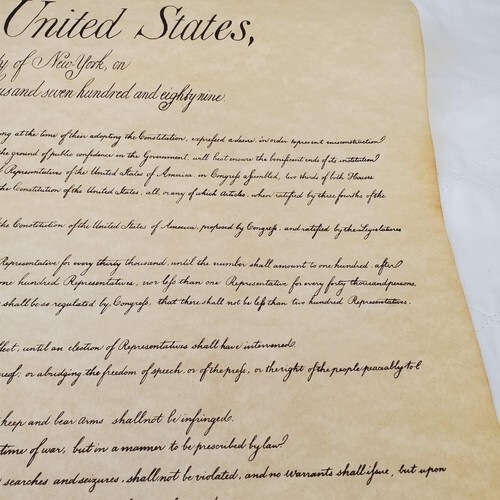 United States,
of New-York, on
and seven hundred and eighty nine.
at the time of their adopting the Constitution, expressed a desire, in order to prevent misconstruction
the ground of public confidence in the Government, will best ensure the beneficent ends of its institution
Representatives of the United States of America, in Congress assembled, two thirds of both Houses
the Constitution of the United States, all, or any of which Articles, when ratified by three fourths of the
the Constitution of the United States of America, proposed by Congress, and ratified by the Legislatures
Representative for every thirty thousand, until the number shall amount to one hundred, after
one hundred Representatives, nor less than one Representative for every forty thousand persons,
shall be so regulated by Congress, that there shall not be less than two hundred Representatives,
until an election of Representatives shall have intervened.
or abridging the freedom of speech, or of the press, or the right of the people peaceably to
keep and bear arms shall not be infringed.
time of war, but in a manner to be prescribed by law.
searches and seizures, shall not be violated, and no warrants shall issue, but upon